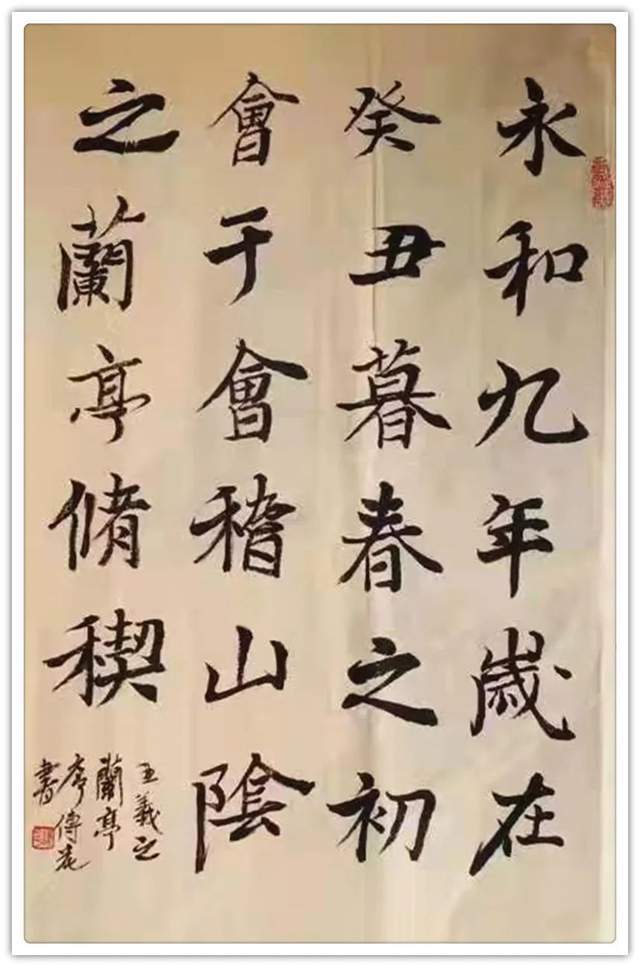 永和九年歲在
癸丑暮春之初
會于會稽山陰
之蘭亭脩稧
王羲之
蘭亭
序傳花
書